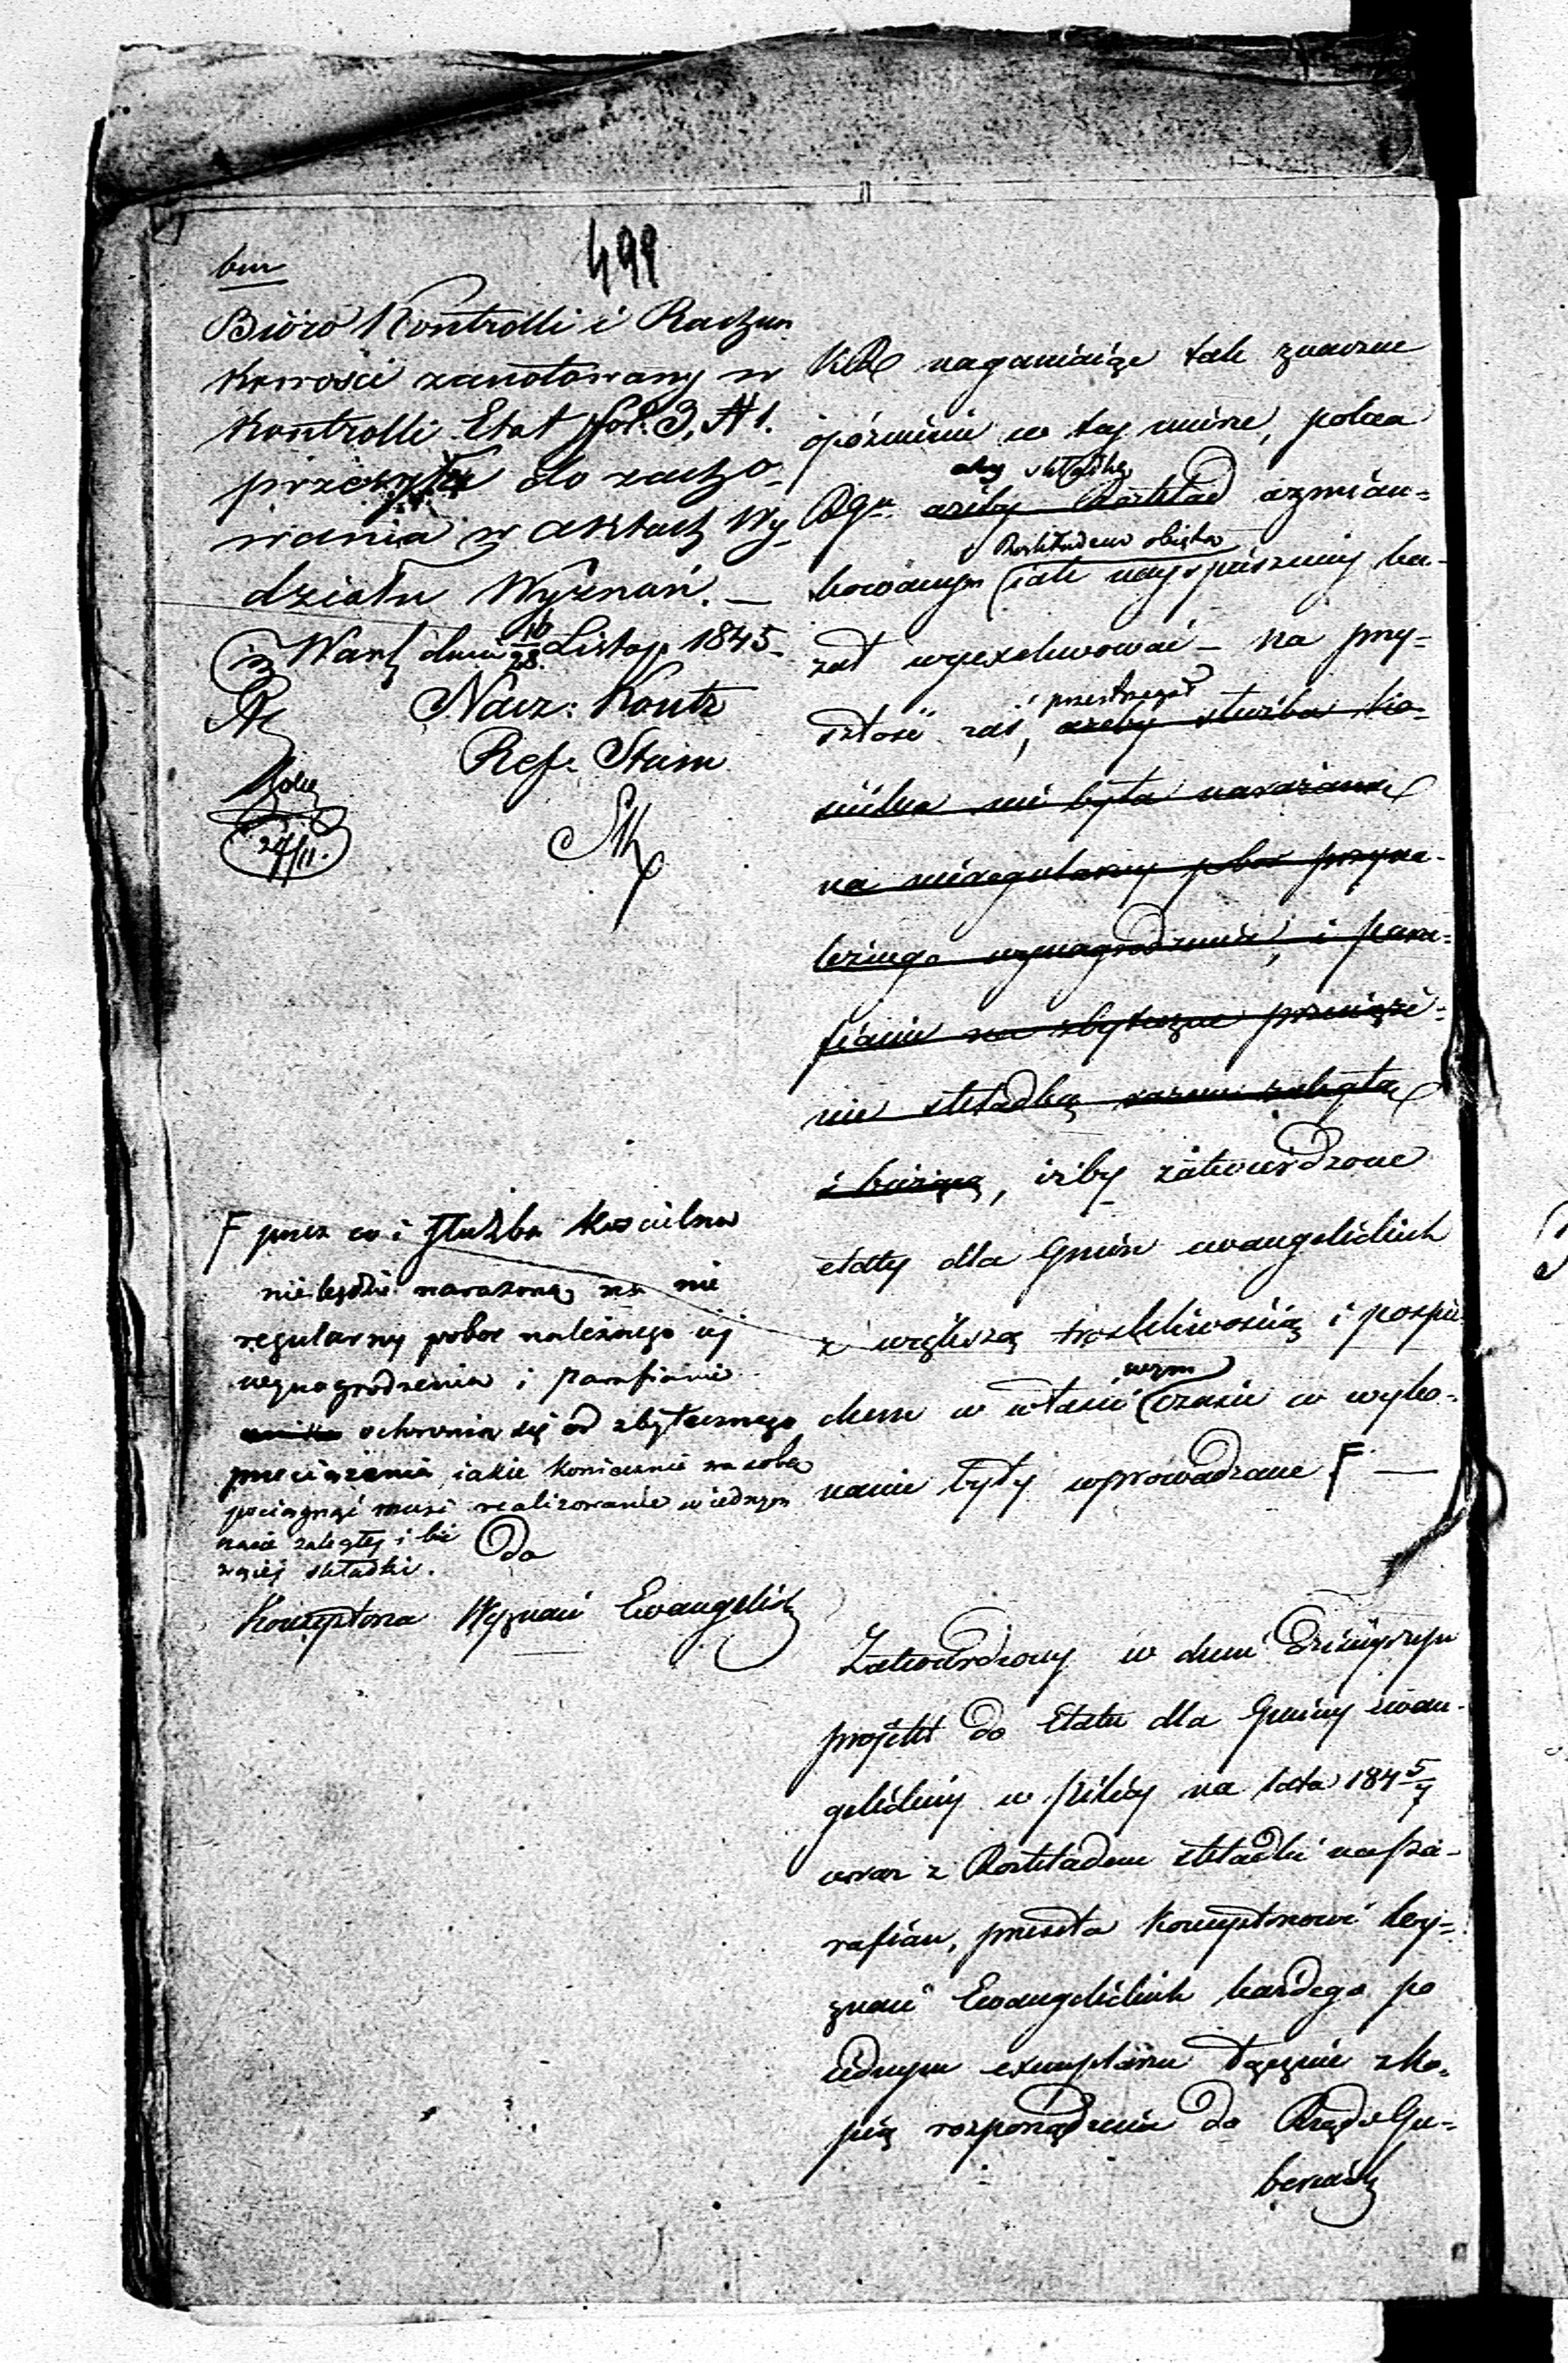 499
bm
Biuro Kontrolli i Rachun
kowości zanotowany w
Kontrolli Etat fol. 3, N 1.
przesyła do zacho-
wania w aktach Wy-
działu Wyznań. —
w Warsz dnia 16/28 Listop. 1845
Nacz: Kontr
Ref. Stam
27/11.
F przez co i służba kościelna
nie będzie narażoną na nie
regularny pobór należnego jej
wynagrodzenia i parafianie
ochronią się od zbytecznego
przeciążenia, jakie koniecznie za sobą
pociągnąć musi realizowanie w jednym
czasie zaległej i bie
żącej składki.
Do
Konsystorza Wyznań Ewangelick
KR naganiając tak znaczne
opóźnienie w tej mierze, poleca
aby składkę
Rząd. ażeby Rozkład wzmian-
Rozkładem objętą
kowanym jak najspieszniej ka-
zał wyexekwować — na przy-
i przestrzegał
szłość zaś, ażeby służba ko-
ścielna nie była narażaną
na nieregularny pobór przyna-
leżnego wynagrodzenia, i para-
fianie na zbyteczne przeciąże-
nie składką razem zaległą
i bieżącą, iżby zatwierdzone
etaty dla Gmin ewangelickich
z większą troskliwością i pospie
wym
chem w właści czasie w wyko-
nanie były wprowadzane F —
Zatwierdzony w dniu dzisiejszym
projekt do Etatu dla Gminy ewan-
gelickiej w Pilicy na lata 1845/7
wraz z Rozkładem składki na pa-
rafian, przesyła Konsystorzowi Wy-
znań Ewangelickich każdego po
jednym exemplarzu łącznie z ko-
pią rozporządzenia do Rządu Gu-
bernial